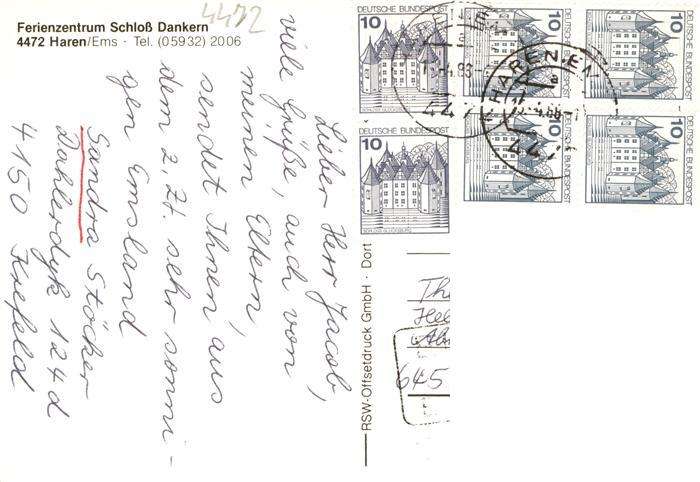 4472
Ferienzentrum Schloß Dankern
4472 Haren/Ems · Tel. (05932) 2006
Lieber Herr Jacob,
viele Grüße, auch von
meinen Eltern,
sendet Ihnen aus
dem z. Zt. sehr sonni-
gen Emsland
Sandra Stöcker
Dahlerdyk 124d
4150 Krefeld
RSW-Offsetdruck GmbH · Dort
10
DEUTSCHE BUNDESPOST
SCHLOSS GLÜCKSBURG
10
DEUTSCHE BUNDESPOST
SCHLOSS GLÜCKSBURG
10
DEUTSCHE BUNDESPOST
10
DEUTSCHE BUNDESPOST
10
DEUTSCHE BUNDESPOST
10
DEUTSCHE BUNDESPOST
HAREN, EM
447
Th
645